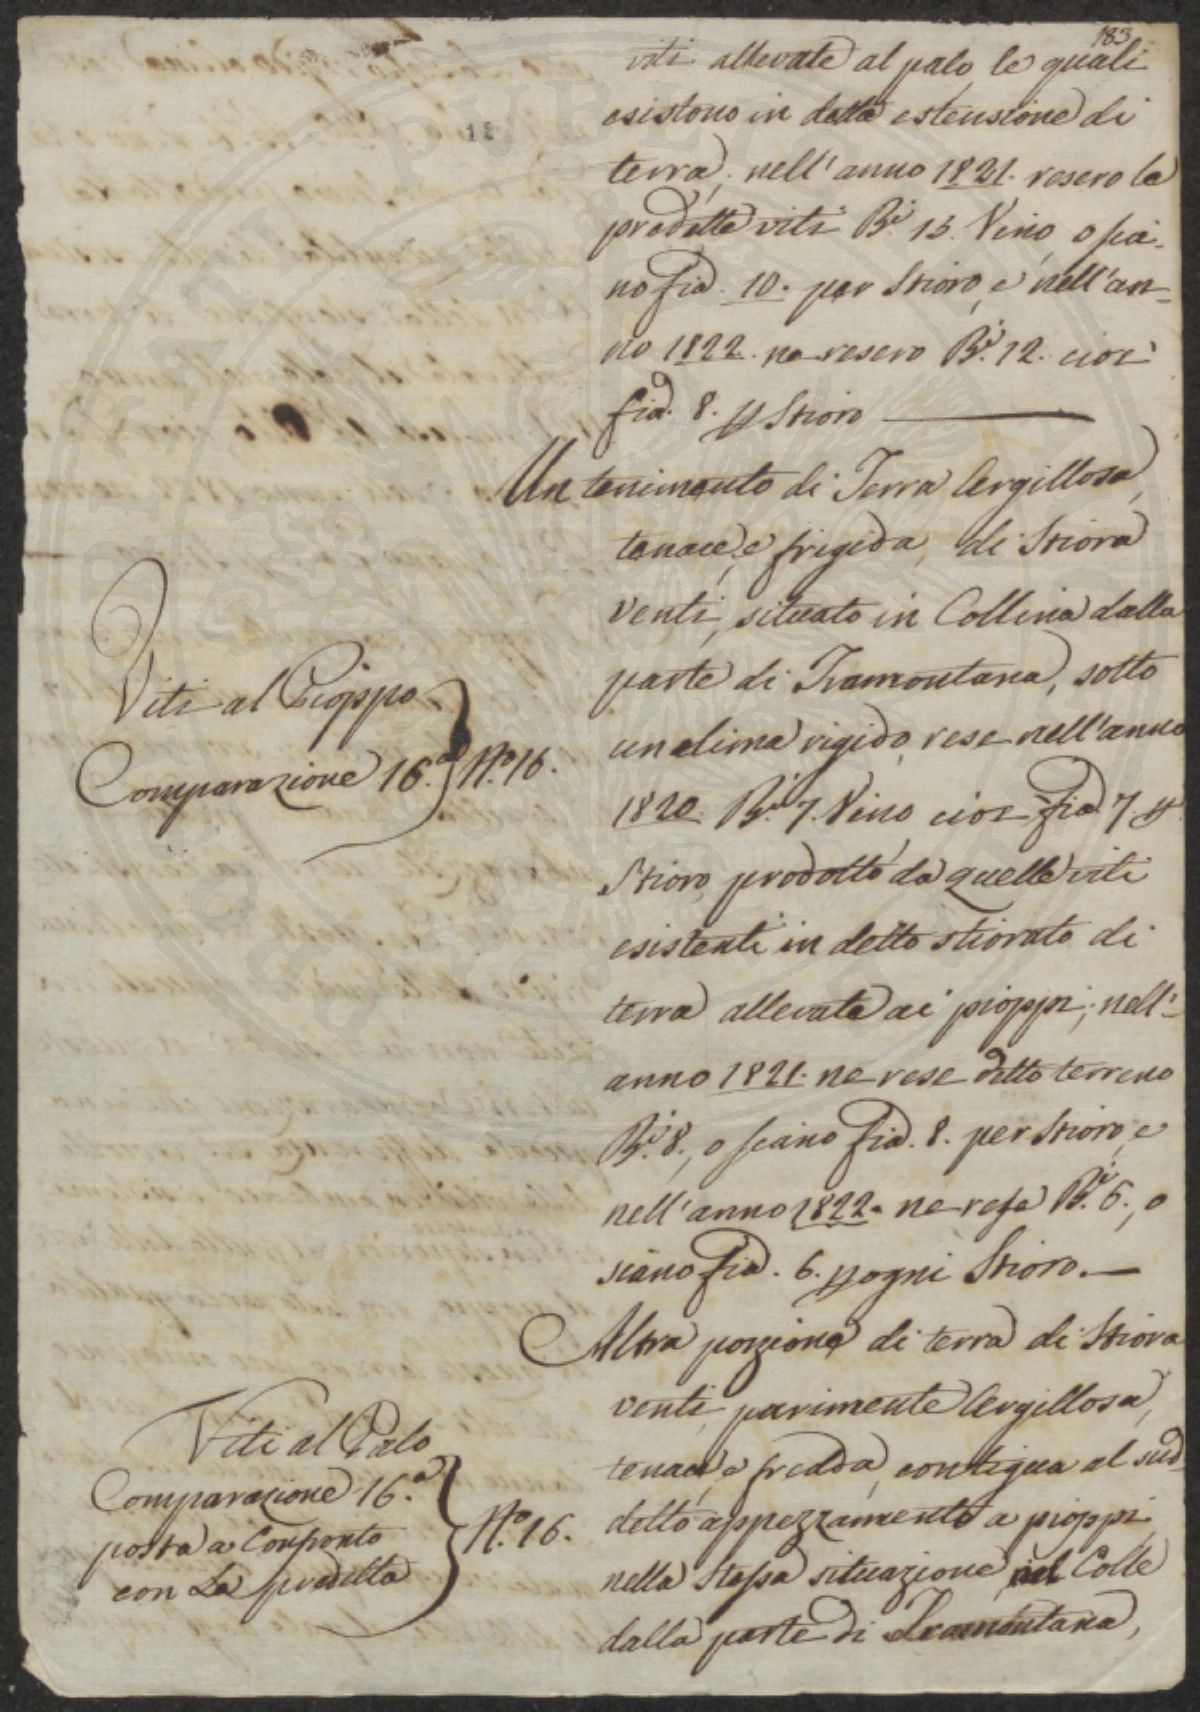 183
12
viti allevate al palo le quali
esistono in detta estensione di
terra; nell'anno 1821. resero le
predette viti B.i 15. Vino, o sia-
no fia. 10. per Stioro, e nell'an-
no 1822. ne resero B.i 12. cioè
fia. 8. p Stioro
Un tenimento di Terra Argillosa,
tenace, e frigida, di Stiora
venti, situato in Collina dalla
parte di Tramontana, sotto
un clima rigido, rese nell'anno
1820. B.i 7. Vino cioè fia. 7 p
Stioro, prodotto da quelle viti
esistenti in detto stiorato di
terra allevate ai pioppi; nell'
anno 1821. ne rese detto terreno
B.i 8., o siano fia. 8. per Stioro, e
nell'anno 1822. ne rese B.i 6., o
siano fia. 6. p ogni Stioro.
Altra porzione di terra di Stiora
venti, parimente Argillosa,
tenace, e fredda, contigua al sud-
detto appezzamento a pioppi,
nella stessa situazione nel Colle
dalla parte di Tramontana,
Viti al Pioppo
Comparazione 16.a N.o 16.
Viti al Palo
Comparazione 16.a
posta a Confronto N.o 16.
con La predetta